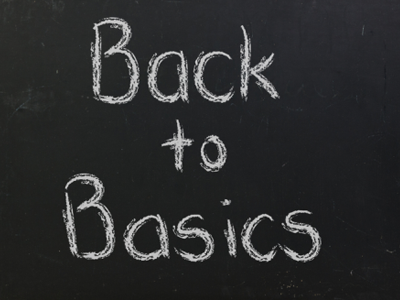 Back
to
Basics